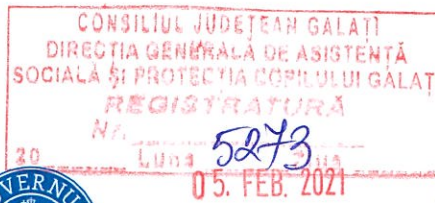 CONSILIUL JUDEȚEAN GALAȚI
DIRECȚIA GENERALĂ DE ASISTENȚĂ
SOCIALĂ ȘI PROTECȚIA COPILULUI GALAȚ
REGISTRATURĂ
Nr. 5273
20 Luna Ziua
05. FEB. 2021
VERNU